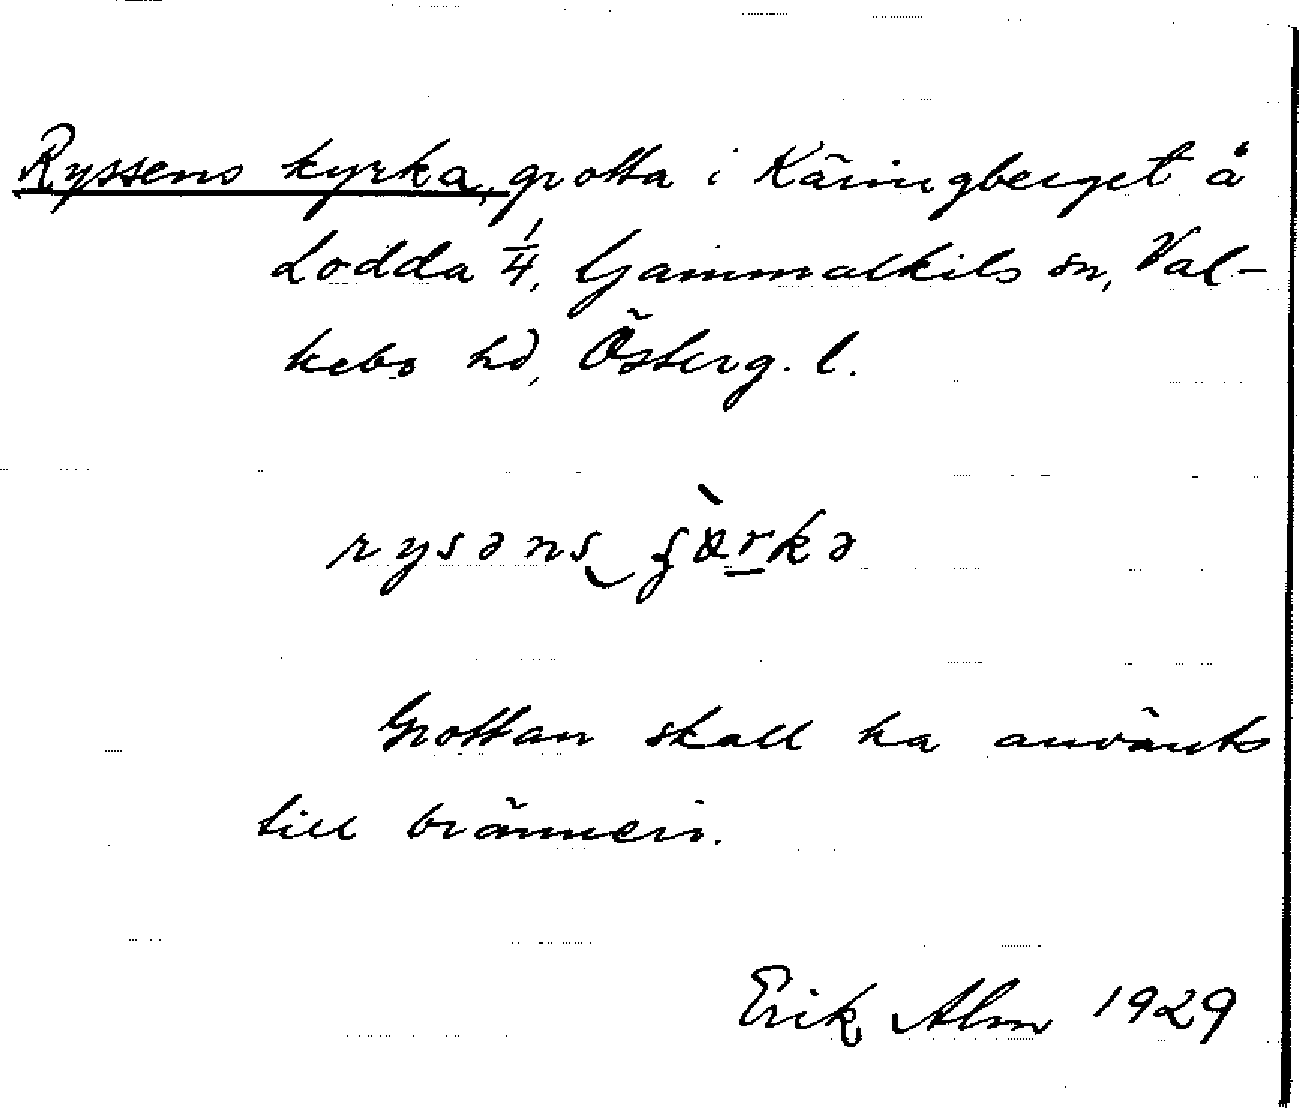 Ryssens kyrka, grotta i Käringberget å
Lodda 1/4, Gammalkils sn, Val-
kebo hd, Österg. l.
rysəns ʃœ̀rkə
Grottan skall ha använts
till bränneri.
Erik Alm 1929